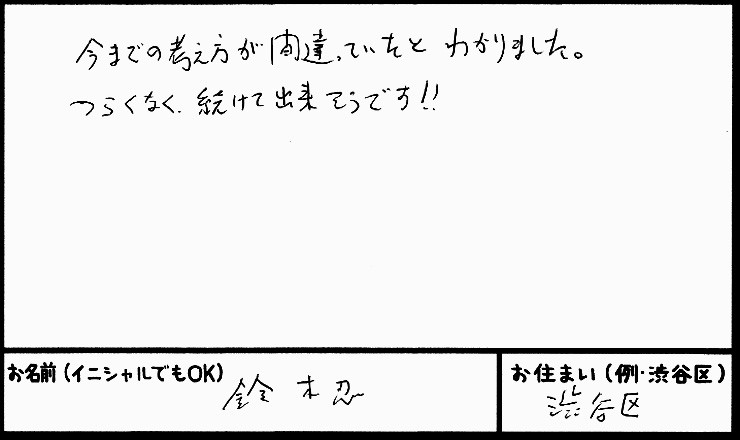 今までの考え方が間違っていたと わかりました。
つらくなく、続けて出来そうです!!
お名前(イニシャルでもOK)
鈴木忍
お住まい(例・渋谷区)
渋谷区